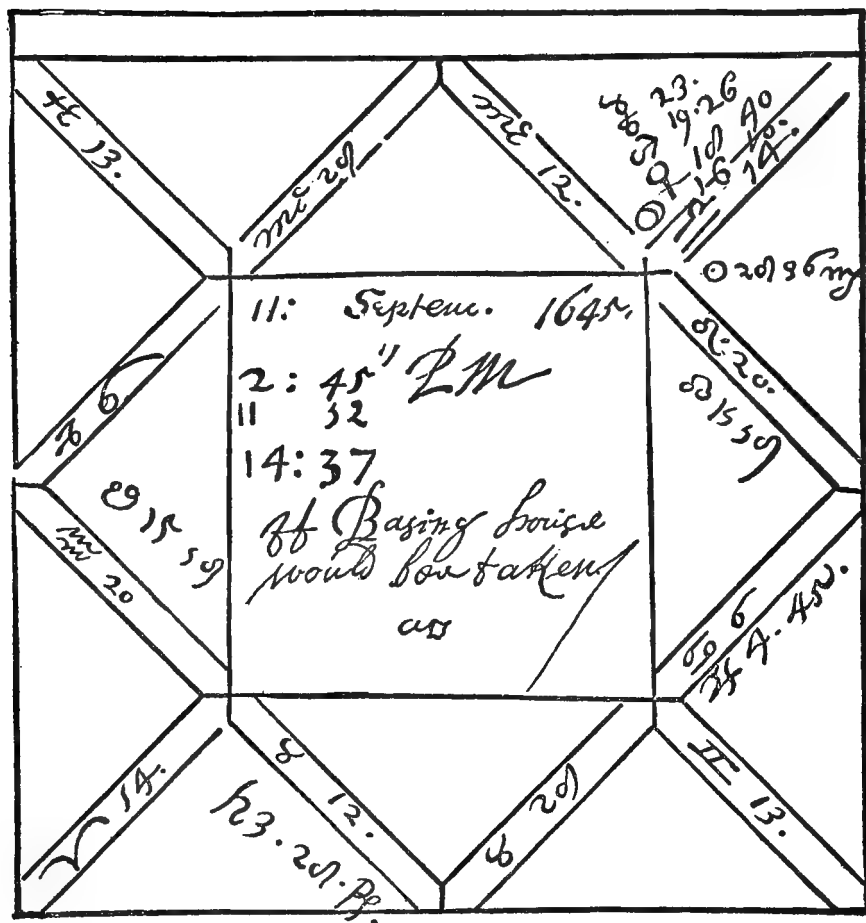 ♐ 13.
♏ 29
♏ 12.
23.
♂ 19. 26
♀ 18 40
14.
☉ 28 36 ♍
♌: 20.
☊ 15 59
♑ 6
11: Septem. 1645.
2: 45" PM
11 52
14: 37
If Basing house
would bee taken
☋ 15 59
♒ 20
♋ 6
♃ 4. 45 ♌.
♈ 14.
♉ 12.
♄ 3. 28.
♉ 29
♊ 13.